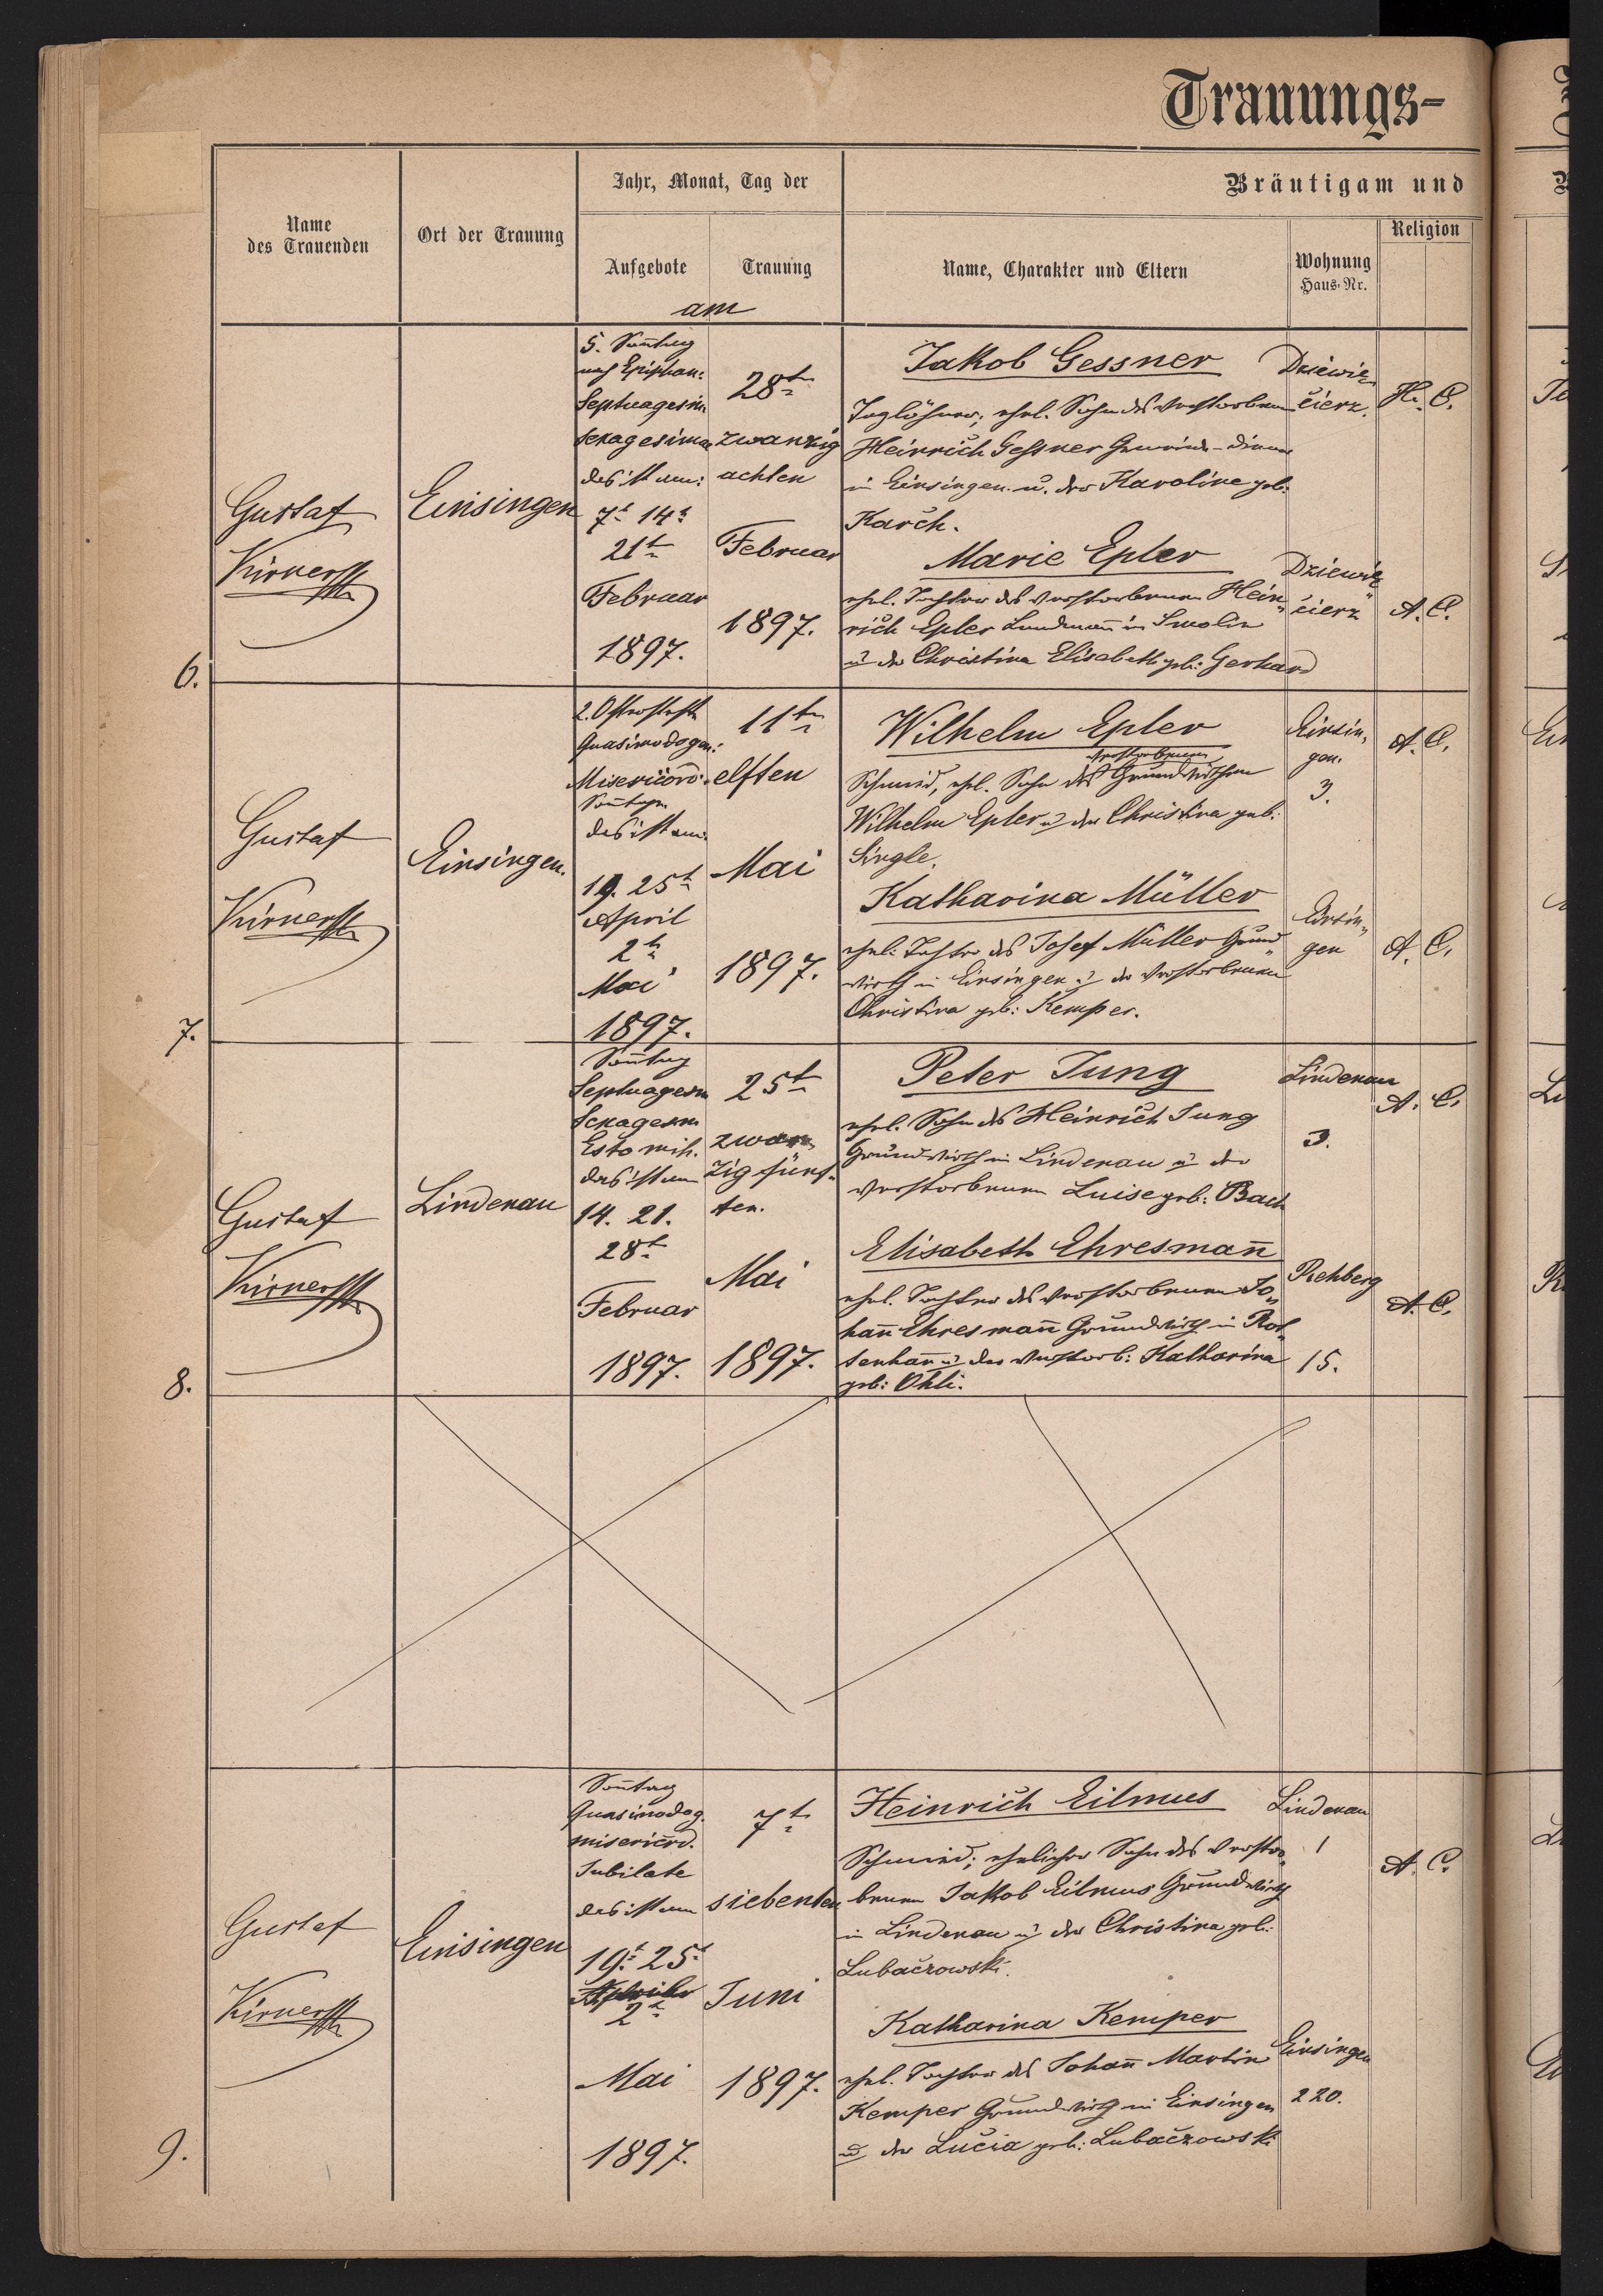 Trauungs-
Name
des Trauenden
Ort der Trauung
Jahr, Monat, Tag der
Aufgebote
Trauung
am
Bräutigam und
Name, Charakter und Eltern
Wohnung
Haus-Nr.
Religion
6.
Gustaf
Einsingen
5. Sonntag
nach Epiphan:
Septuagesim
Sexagesimae
das ist am:
7t 14t
21t
Februar
1897.
28t
zwanzig
achten
Februar
1897.
Jakob Gessner
Taglöhner, ehel. Sohn des verstorbenen
Heinrich Gessner Gemeinde-Diener
in Einsingen u. der Karoline geb:
Karch.
Dziewie
cierz.
H. C.
Marie Epler
ehel. Tochter des verstorbenen Hein
rich Epler Landmañ in Smolin
u. der Christina Elisabeth geb: Gerhard
Dziewie
cierz
A. C.
7.
Gustaf
Einsingen.
2. Osterfest
Quasimodogen:
Misericord:
Soñtage
das ist am
19. 25t
April
2t
Mai
1897.
11t
elften
Mai
1897.
Wilhelm Epler
verstorbenen
Schmied, ehel. Sohn des Grundwirthen
Wilhelm Epler u. der Christina geb:
Single.
Einsin,
gen.
3.
A. C.
Katharina Müller
ehel: Tochter des Josef Müller Grund
wirth in Einsingen u. der verstorbenen
Christina geb: Kemper.
Einsin,
gen
A. C.
8.
Gustaf
Lindenau
Soñtag
Septuagesm
Sexagesm
Esto mih.
das ist am
14. 21.
28t
Februar
1897.
25t
zwan
zig fünf
ten.
Mai
1897.
Peter Jung
ehel. Sohn des Heinrich Jung
Grundwirth in Lindenau u. der
verstorbenen Luise geb: Bach
Lindenau
3.
A. C.
Elisabeth Ehresmañ
ehel. Tochter des verstorbenen Jo
hañ Ehresmañ Grundwirth in Rot
tenhan u. der verstorb: Katharina
geb: Ohli.
Rehberg
15.
A. C.
9.
Gustaf
Einsingen
Soñtag
Quasimodog.
misericord.
Jubilate
das ist am
19t 25t
2t
Mai
1897.
7t
siebenten
Juni
1897.
Heinrich Eilmus
Schmied; ehelicher Sohn des verstor
benen Jakob Eilmus Grundwirth
in Lindenau u. der Christina geb:
Lubaczowski.
Lindenau
1
A. C.
Katharina Kemper
ehel. Tochter des Johañ Martin
Kemper Grundwirth in Einsingen
u. der Lucia geb: Lubaczowski
Einsingen
220.